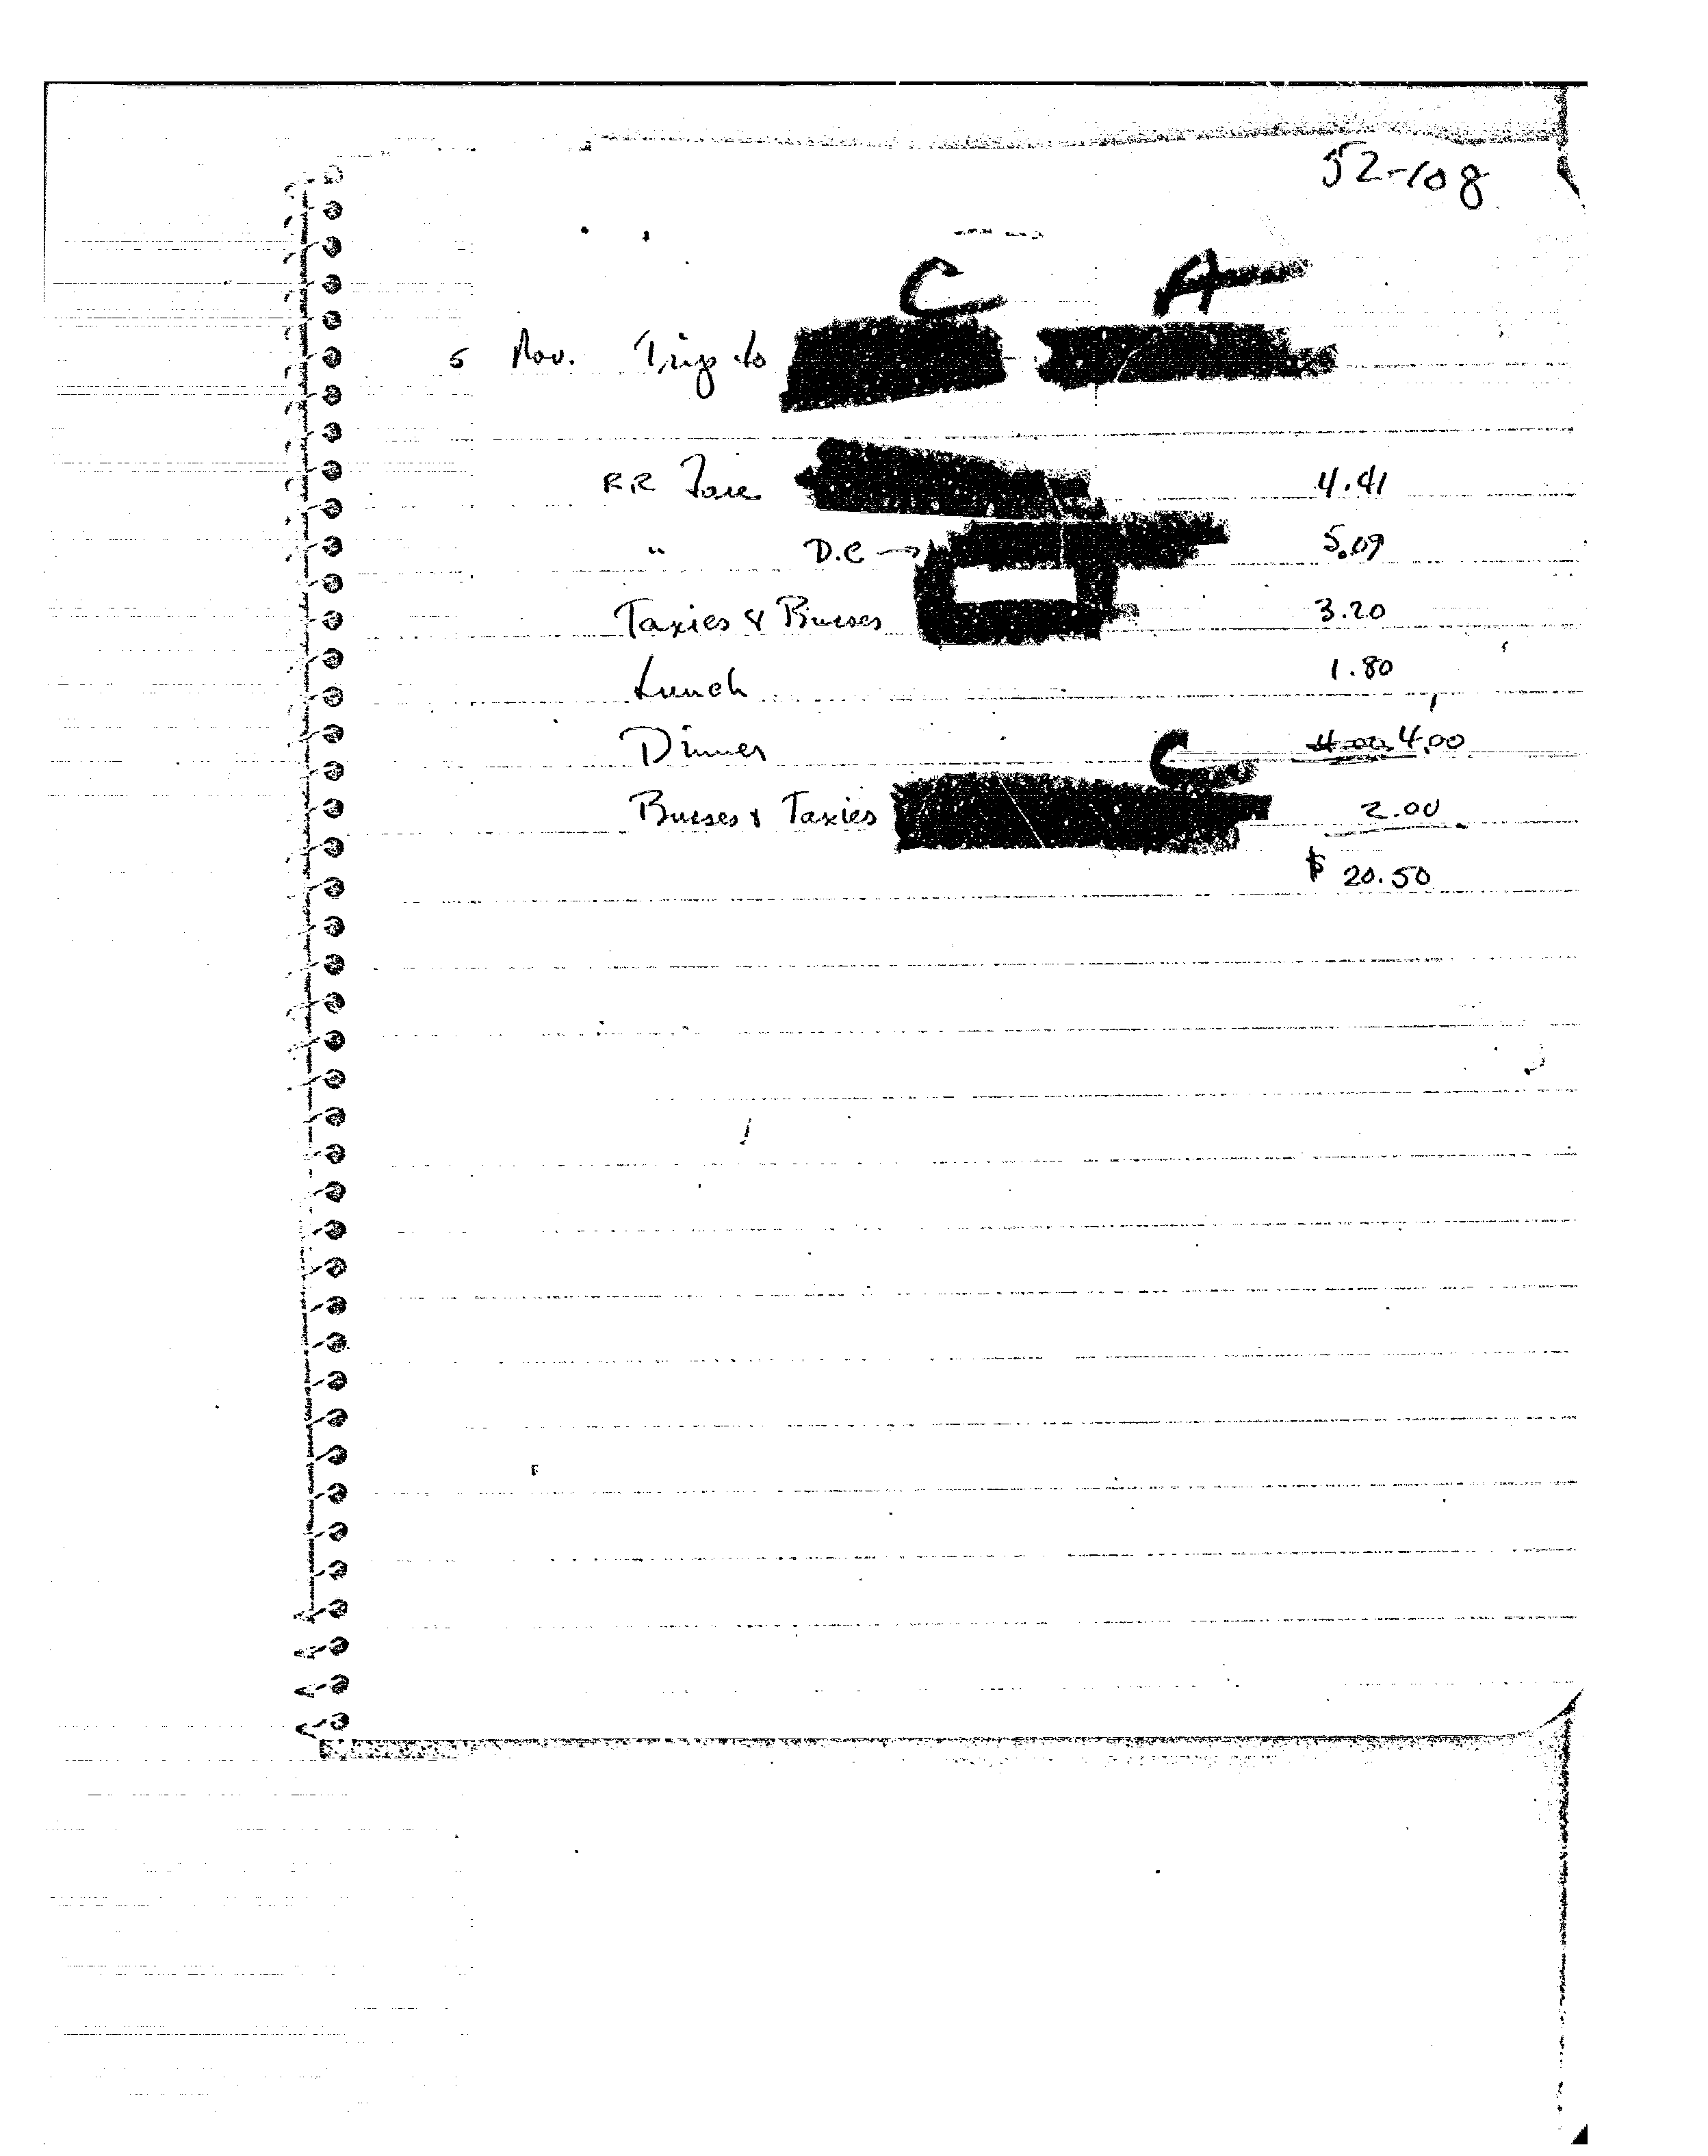 52-108
C A
5 Nov. Trip to
RR Fare 4.41
" D.C → 5.09
Taxies & Busses 3.20
Lunch 1.80
Dinner 4.00 4.00
C
Busses & Taxies 2.00
$ 20.50